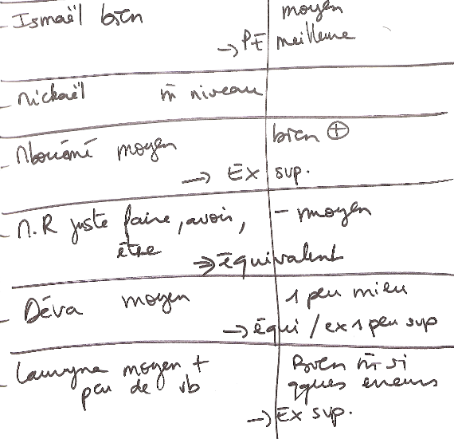 - Ismaël bien moyen
→ PE meilleure
- Mickaël m̄ niveau
- moyen bien ⊕
→ Ex sup.
- M.R juste faire, avoir, - moyen
être → équivalent
- Déva moyen 1 peu mieu
→ équi / ex 1 peu sup
- Lauryna moyen + Bien m̄ si
peu de vb qques erreurs
→ Ex sup.